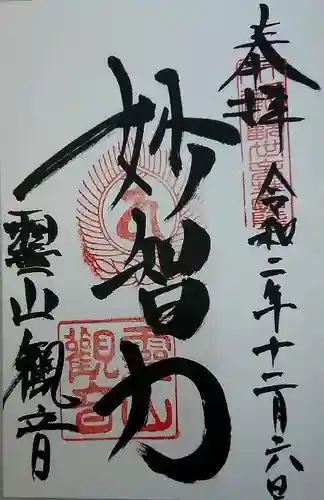 奉拝
令和二年十二月六日
妙智力
靈山観音
靈山
觀音